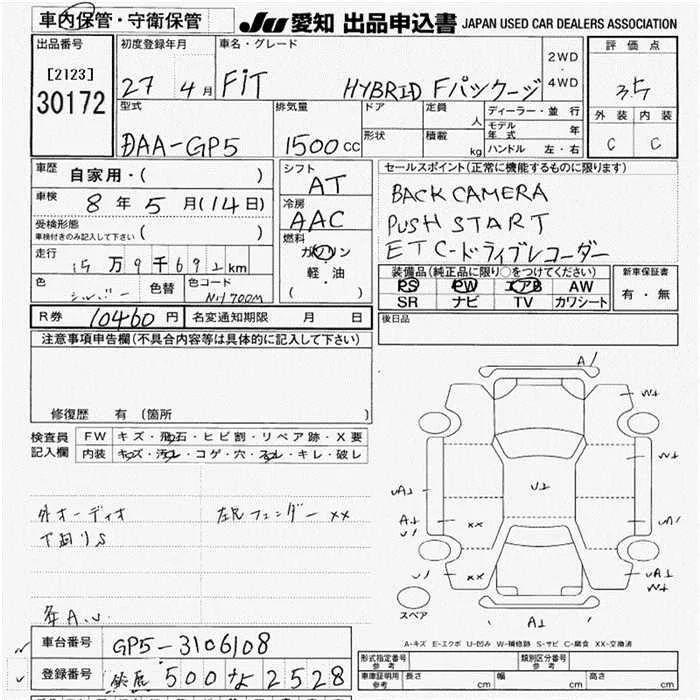 車内保管・守衛保管
JU 愛知 出品申込書 JAPAN USED CAR DEALERS ASSOCIATION
出品番号
[2123]
30172
初度登録年月
27 4月
車名・グレード
FiT HYBRID Fパッケージ
2WD
・
4WD
評価点
3.5
外装 内装
C C
型式
DAA-GP5
排気量
1500cc
ドア
形状
定員
人
積載
kg
ディーラー・並行
モデル年式 年
ハンドル 左・右
車歴 自家用・( )
車検 8年5月(14日)
受検形態
車検付きのみ記入して下さい ( )
走行 万9千69 km
色 シルバー 色替 色コード NH700M
シフト
AT
冷房
AAC
燃料
ガソリン
・
軽・油
( )
セールスポイント(正常に機能するものに限ります)
BACK CAMERA
PUSH START
ETC-ドライブレコーダー
装備品(純正品に限り○をつけてください)
PS PW エアB AW
SR ナビ TV カワシート
新車保証書
有・無
R券 10460円 名変通知期限 月 日
後日品
注意事項申告欄(不具合内容等は具体的に記入して下さい)
修復歴 有(箇所 )
検査員記入欄
FW キズ・飛石・ヒビ割・リペア跡・X要
内装 キズ・汚れ・コゲ・穴・スレ・キレ・破レ
外オーディオ
下回りS
左Fフェンダー xx
A/
xx
xx
スペア
A-キズ E-エクボ U-凹み W-補修跡 S-サビ C-腐食 XX-交換済
車台番号 GP5-3106108
登録番号 500 な 2528
形式指定番号 参考
類別区分番号 参考
車庫証明用 参考 長さ cm 幅 cm 高さ cm